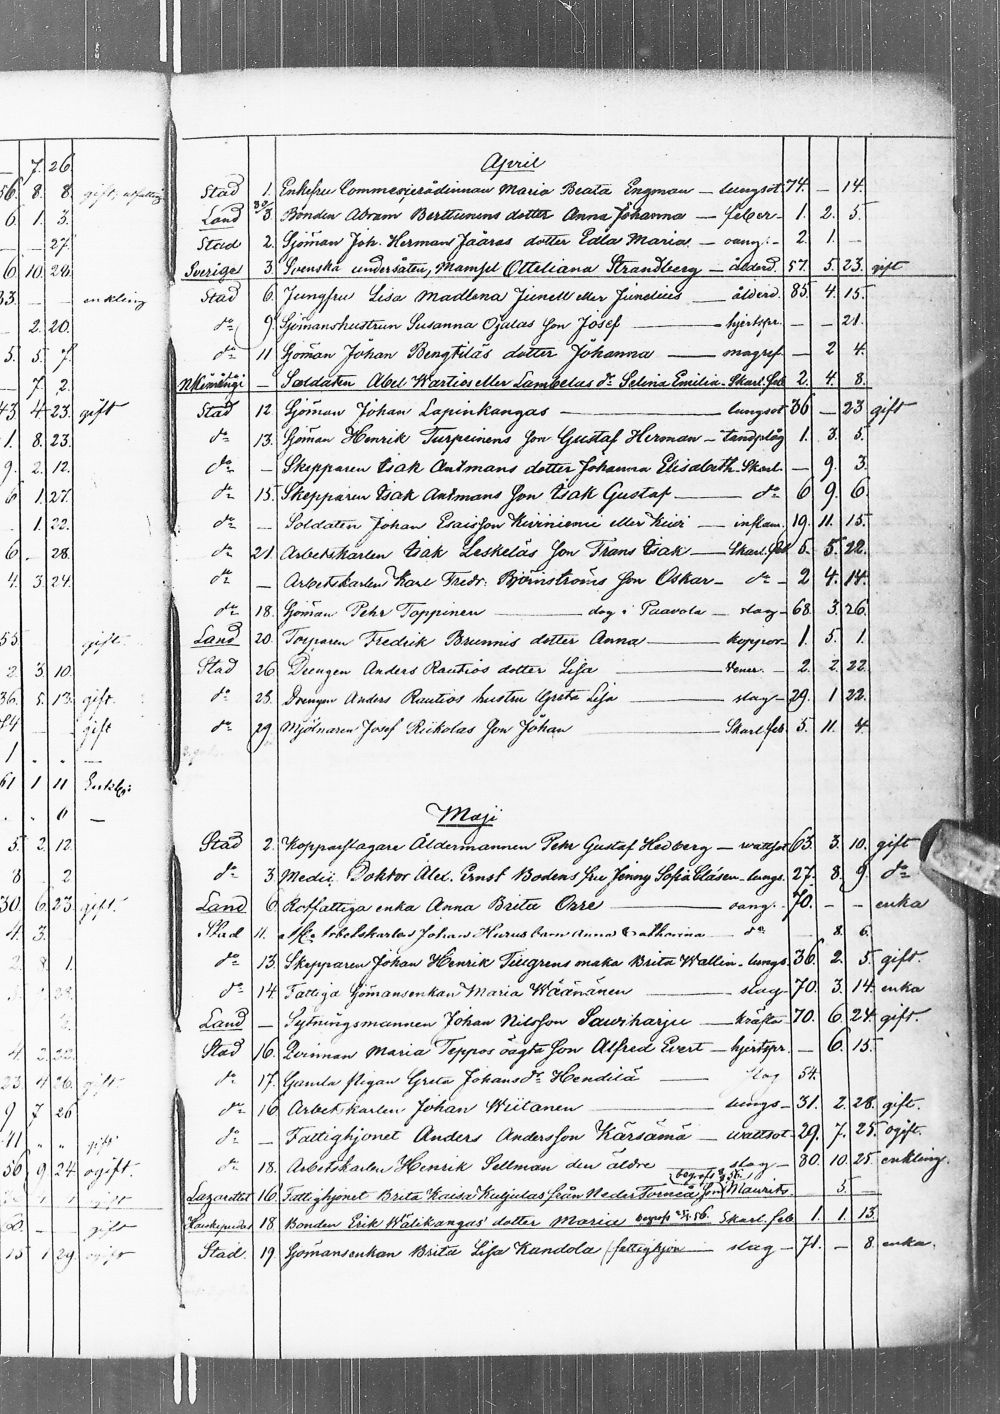 — 7. 26.
56. 8. 8. gift,
6 1. 3.
— — 27.
6 10. 28.
33. — — enkling
— 2. 20.
5. 5. 7.
— 7. 2.
43 4. 23. gift
1. 8. 23.
9. 2. 12.
6 1. 27.
— 1. 22.
6 — 28.
4. 3 24.
55 gift
2 3 10.
36. 5. 13. gift
gift
1 . .
61 1 11 Enkl.
. . 11 —
5. 2. 12.
8 . 2
30 6. 23. gift.
4. 3.
1.
4. 2.
23. 4 26. gift
9 7 26
41 " " gift
56 9 24 ogift.
gift
60. — gift
15 1 29 ogift
April
Stad 1. Enkefru Commerserådinnan Maria Beata Engman — lungsot 74. — 14.
Land 30/3. Bonden Abram Berttunens dotter Anna Johanna — feber — 1. 2. 5.
Stad 2. Sjöman Joh. Herman Jääräs dotter Edla Maria — oang. — 2. 1. —
Sverige 3. Svenska undersåten, Mamsel Otteliana Strandberg — ålderd. 57. 5. 23. gift
Stad 6. Jungfru Lisa Madlena Junell eller Junelius — ålderd. 85. 4. 15.
do 9. Sjömanshustrun Susanna Ojalas son Josef — hjertspr. — — 21.
do 11 Sjöman Johan Bengtiläs dotter Johanna — magref — 2 4.
— Soldaten Abel Wartios eller Lambelas dr Selina Emilia — Skarl. feb 2. 4. 8.
Stad 12. Sjöman Johan Lapinkangas — lungsot 36 — 23 gift
do 13. Sjöman Henrik Turpeinens son Gustaf Herman — tandplåg 1. 3. 5.
do — Skepparen Isak Antmans dotter Johanna Elisabeth — Skarl. — 9. 3.
do 15. Skepparen Isak Antmans son Isak Gustaf — do 6 9. 6.
do — Soldaten Johan Esaisson Kiviniemi eller Kivi — inflam. 19. 11. 15.
do 21 Arbetskarlen Isak Leskeläs son Frans Isak — Skarl. feb 5. 5. 22.
do — Arbetskarlen Karl Fredr. Björnströms son Oskar — do — 2 4. 14.
do 18. Sjöman Pehr Toppinen — dog i Paavola — slag — 68. 3. 26.
Land 20. Torparen Fredrik Brunnis dotter Anna — koppor — 1. 5. 1.
Stad 26. Drengen Anders Rautios dotter Lisa — Vener. — 2. 2. 22.
do 28. Drengen Anders Rautios hustru Greta Lisa — slag — 29. 1 22.
do 29. Mjölnaren Josef Riekolas son Johan Skarl. feb. 5. 11. 4.
Maji
Stad 2. Kopparslagare Åldermannen Pehr Gustaf Hedberg — wattsot 63. 3. 10. gift
do 3. Medic. Doktor Alex. Ernst Bodens fru Jenny Sofia Clásen — lungs. 27. 8. 9 do
Land 6. Rotfattiga enka Anna Brita Orre — oang. — 70. — — enka
Stad 11. Johan barn Anna Catharina — do — 8. 6.
do 13. Skepparen Johan Henrik Tiugrens maka Brita Wallin — lungs. 36. 2. 5. gift.
do 14. Fattiga Sjömansenkan Maria Wäänänen — slag — 70. 3. 14. enka
Land — Sytningsmannen Johan Nilsson Sauviharju — kräfta — 70. 6. 24. gift.
Stad 16. Qvinnan Maria Teppos oägta son Alfred Evert — hjertspr. — 6. 15.
do 17. Gamla pigan Greta Johansdr Hendilä — slag 54.
do 16 Arbetskarlen Johan Wiitanen — lungs — 31. 2. 28. gift.
do — Fattighjonet Anders Andersson Kärsämä — wattsot — 29. 7. 25. ogift.
do 18. Arbetskarlen Henrik Sellman den äldre — slag — 80 10. 25 enkling.
Lazarettet 16. Fattighjonet Brita Kaisa Kuljulas från Neder Torneå, son Maurits 5
18 Bonden Erik Wälikangas dotter Maria begrofs 25/5 56. Skarl. feb 1. 1. 13.
Stad. 19. Sjömansenkan Brita Lisa Kandola (fattighjon — slag — 71. — 8. enka.